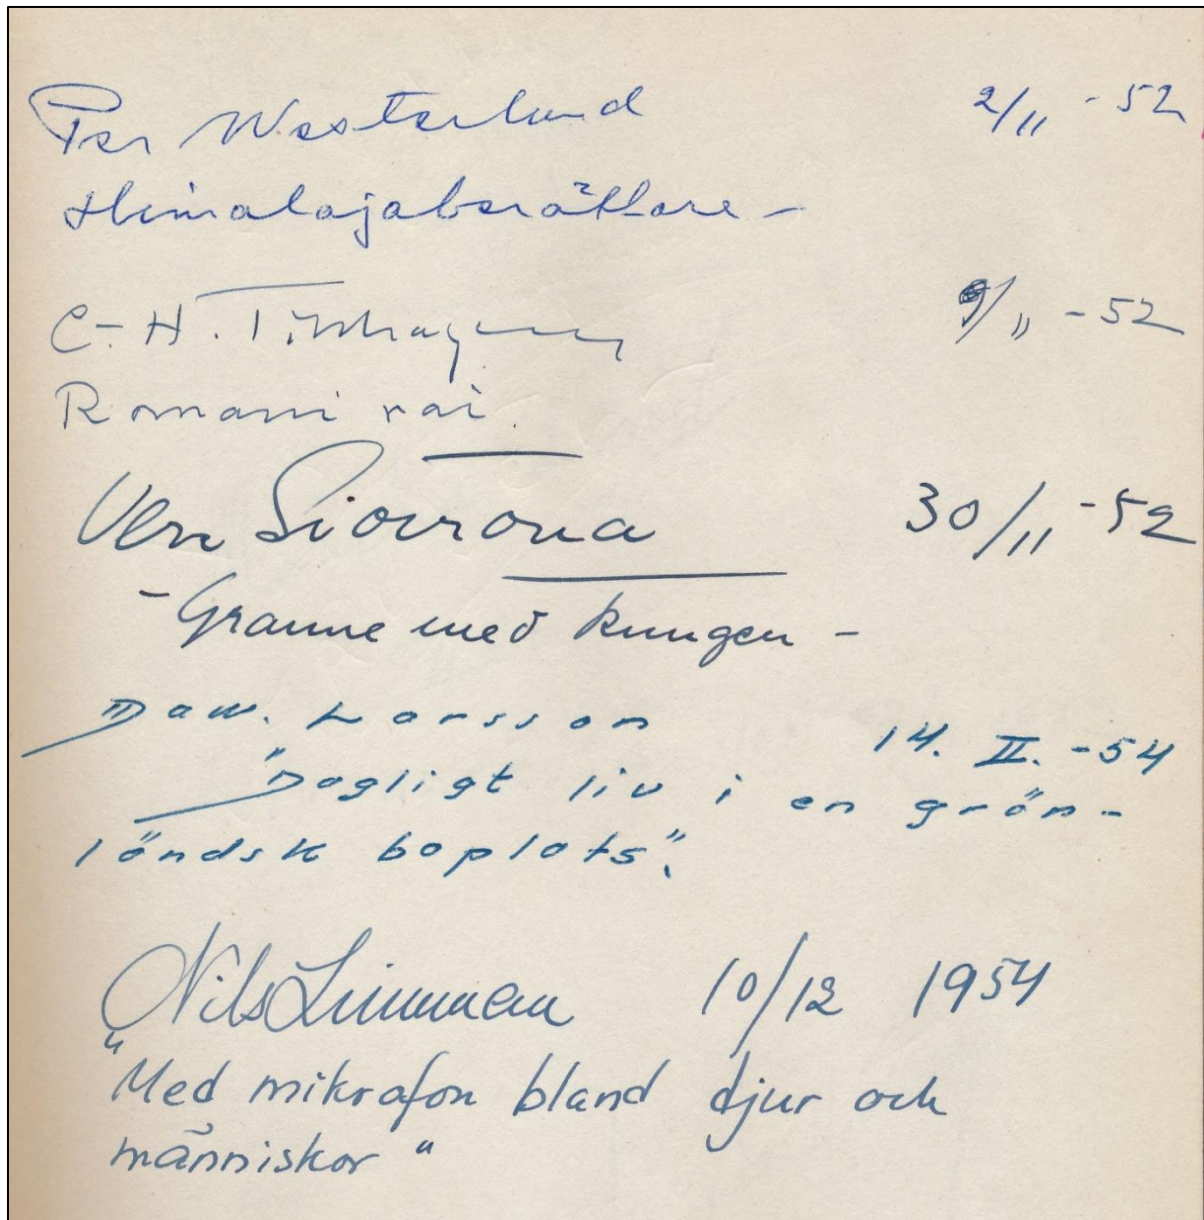 Per Westerlund 2/11 - 52
Himalajaberättare -
C.-H. Tillhagen 9/11 - 52
Romani rai.
Siövrona 30/11 - 52
- Granne med kungen -
Daw. Larsson 14. II. - 54
"Dagligt liv i en grön-
ländsk boplats".
Nils Linnman 10/12 1954
"Med mikrofon bland djur och
människor"